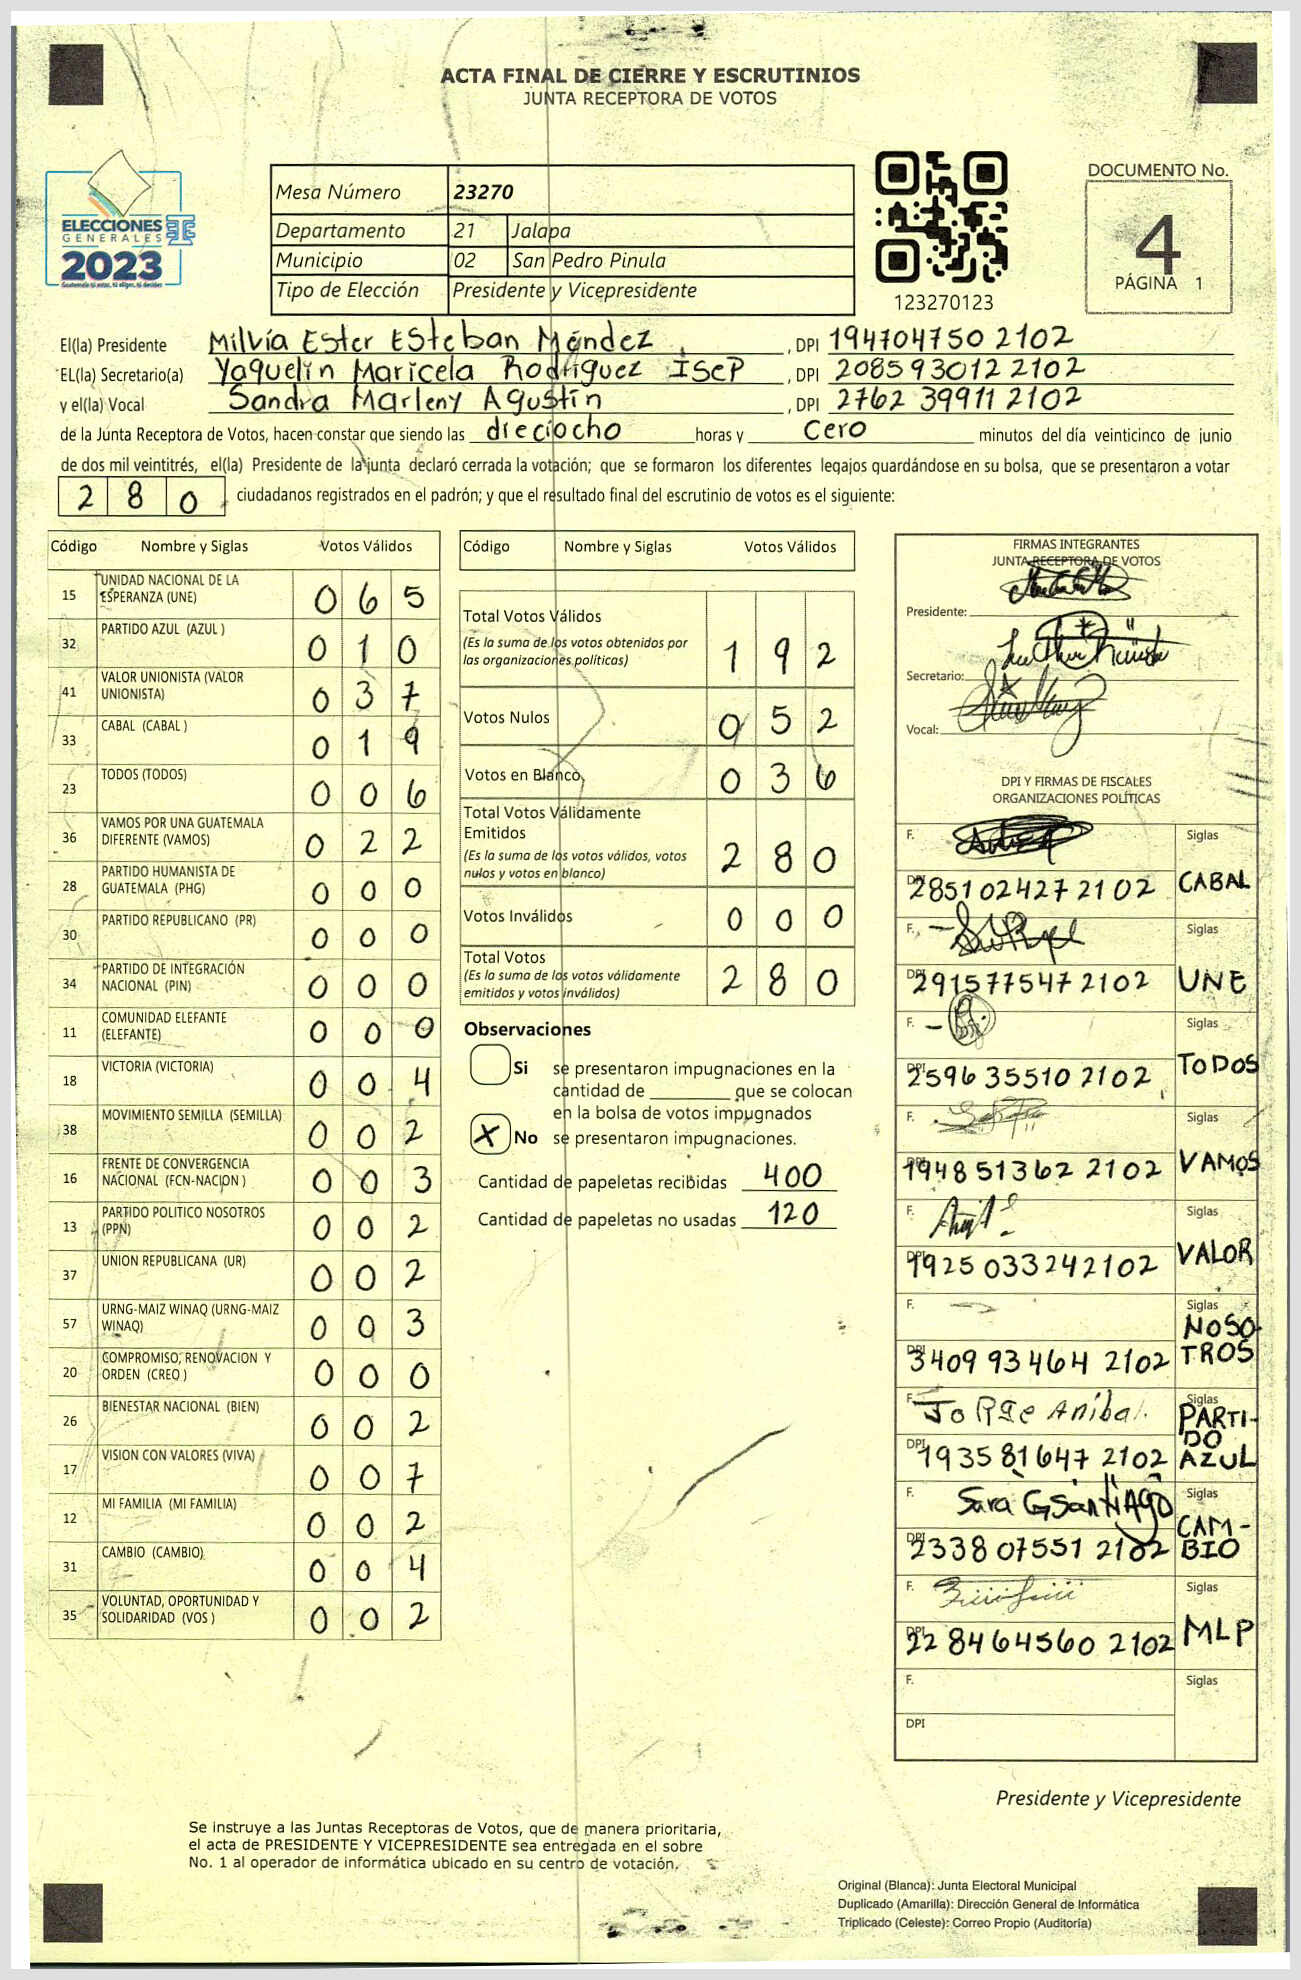 ACTA FINAL DE CIERRE Y ESCRUTINIOS
JUNTA RECEPTORA DE VOTOS
ELECCIONES
GENERALES
2023
Guatemala tú estar, tú eliges, tú decides
Mesa Número 23270
Departamento 21 Jalapa
Municipio 02 San Pedro Pinula
Tipo de Elección Presidente y Vicepresidente
123270123
DOCUMENTO No.
4
PÁGINA 1
El(la) Presidente Milvia Ester Esteban Méndez, DPI 194704750 2102
EL(la) Secretario(a) Yaquelin Maricela Rodriguez ISEP, DPI 208593012 2102
y el(la) Vocal Sandra Marleny Agustín, DPI 2762 39911 2102
de la Junta Receptora de Votos, hacen constar que siendo las dieciocho horas y cero minutos del día veinticinco de junio
de dos mil veintitrés, el(la) Presidente de la junta declaró cerrada la votación; que se formaron los diferentes legajos guardándose en su bolsa, que se presentaron a votar
280 ciudadanos registrados en el padrón; y que el resultado final del escrutinio de votos es el siguiente:
Código Nombre y Siglas Votos Válidos
15 UNIDAD NACIONAL DE LA ESPERANZA (UNE) 065
32 PARTIDO AZUL (AZUL ) 010
41 VALOR UNIONISTA (VALOR UNIONISTA) 037
33 CABAL (CABAL ) 019
23 TODOS (TODOS) 006
36 VAMOS POR UNA GUATEMALA DIFERENTE (VAMOS) 022
28 PARTIDO HUMANISTA DE GUATEMALA (PHG) 000
30 PARTIDO REPUBLICANO (PR) 000
34 PARTIDO DE INTEGRACIÓN NACIONAL (PIN) 000
11 COMUNIDAD ELEFANTE (ELEFANTE) 000
18 VICTORIA (VICTORIA) 004
38 MOVIMIENTO SEMILLA (SEMILLA) 002
16 FRENTE DE CONVERGENCIA NACIONAL (FCN-NACION ) 003
13 PARTIDO POLITICO NOSOTROS (PPN) 002
37 UNION REPUBLICANA (UR) 002
57 URNG-MAIZ WINAQ (URNG-MAIZ WINAQ) 003
20 COMPROMISO, RENOVACION Y ORDEN (CREO ) 000
26 BIENESTAR NACIONAL (BIEN) 002
17 VISION CON VALORES (VIVA) 007
12 MI FAMILIA (MI FAMILIA) 002
31 CAMBIO (CAMBIO) 004
35 VOLUNTAD, OPORTUNIDAD Y SOLIDARIDAD (VOS ) 002
Código Nombre y Siglas Votos Válidos
Total Votos Válidos 192
(Es la suma de los votos obtenidos por las organizaciones políticas)
Votos Nulos 052
Votos en Blanco 036
Total Votos Válidamente Emitidos 280
(Es la suma de los votos válidos, votos nulos y votos en blanco)
Votos Inválidos 000
Total Votos 280
(Es la suma de los votos válidamente emitidos y votos inválidos)
Observaciones
Si se presentaron impugnaciones en la
cantidad de ________ que se colocan
en la bolsa de votos impugnados
X No se presentaron impugnaciones.
Cantidad de papeletas recibidas 400
Cantidad de papeletas no usadas 120
FIRMAS INTEGRANTES
JUNTA RECEPTORA DE VOTOS
Presidente:
Secretario:
Vocal:
DPI Y FIRMAS DE FISCALES
ORGANIZACIONES POLÍTICAS
F. Siglas
DPI 285102427 2102 CABAL
F. Siglas
DPI 291577547 2102 UNE
F. Siglas
DPI 2596 35510 2102 TODOS
F. Siglas
DPI 1948 51362 2102 VAMOS
F. Siglas
DPI 1925 03324 2102 VALOR
F. Siglas
DPI 3409 93464 2102 NOSOTROS
F. Jorge Anibal Siglas
DPI 1935 81647 2102 PARTI-
DO
AZUL
F. Sara G Santiago Siglas
DPI 2338 07551 2102 CAM-
BIO
F. Siglas
DPI 228464560 2102 MLP
F. Siglas
DPI
Presidente y Vicepresidente
Se instruye a las Juntas Receptoras de Votos, que de manera prioritaria,
el acta de PRESIDENTE Y VICEPRESIDENTE sea entregada en el sobre
No. 1 al operador de informática ubicado en su centro de votación.
Original (Blanca): Junta Electoral Municipal
Duplicado (Amarilla): Dirección General de Informática
Triplicado (Celeste): Correo Propio (Auditoría)